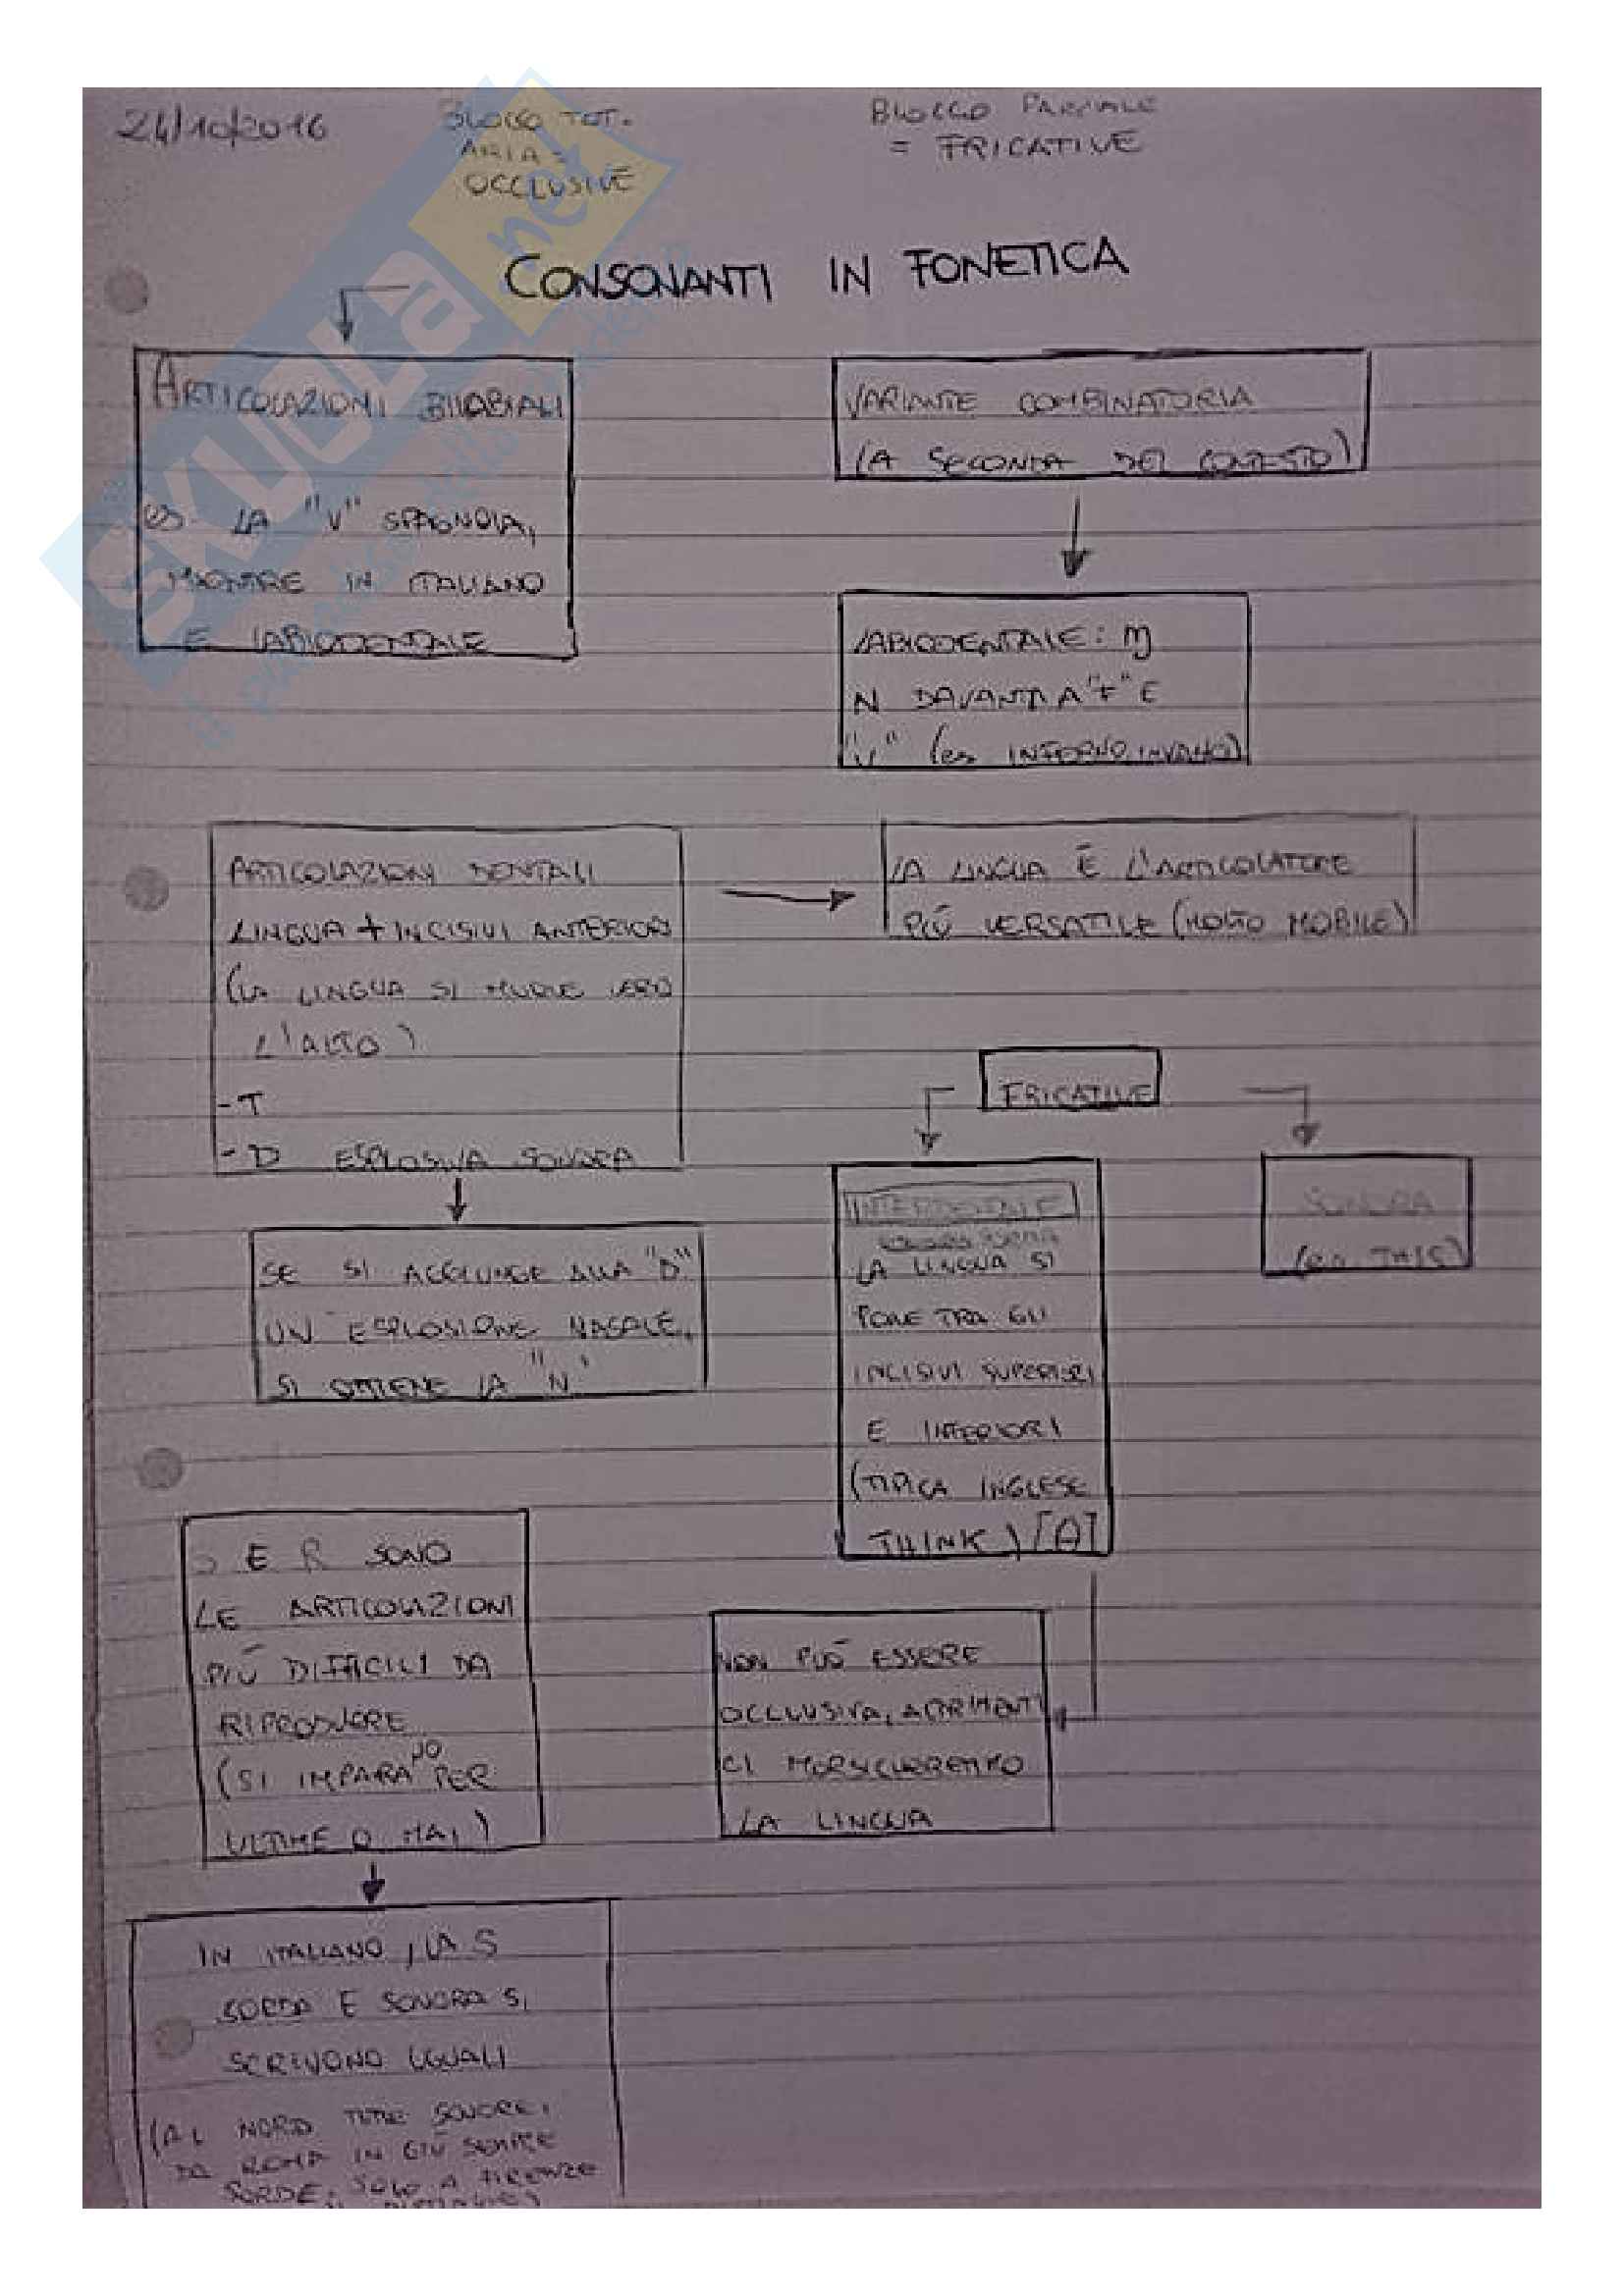 24/10/2016
BLOCCO TOT.
ARIA =
OCCLUSIVE
BLOCCO PARZIALE
= FRICATIVE
CONSONANTI IN FONETICA
ARTICOLAZIONI BILABIALI
es. LA "V" SPAGNOLA,
MENTRE IN ITALIANO
E LABIODENTALE
VARIANTE COMBINATORIA
(A SECONDA DEL CONTESTO)
LABIODENTALE: ɱ
N DAVANTI A "F" E
"V" (es INFERNO, INVANO)
ARTICOLAZIONI DENTALI
LINGUA + INCISIVI ANTERIORI
(LA LINGUA SI MUOVE VERSO
L'ALTO)
- T
- D ESPLOSIVA SONORA
LA LINGUA È L'ARTICOLATORE
PIÙ VERSATILE (MOLTO MOBILE)
SE SI AGGIUNGE ALLA "D"
UN ESPLOSIONE NASALE,
SI OTTIENE LA "N"
FRICATIVE
INTERDENTALE
LA LINGUA SI
PONE TRA GLI
INCISIVI SUPERIORI
E INFERIORI
(TIPICA INGLESE
THINK) [θ]
SONORA
(es. THIS)
NON PUÒ ESSERE
OCCLUSIVA, ALTRIMENTI
CI MORSICHEREMMO
LA LINGUA
S E R SONO
LE ARTICOLAZIONI
PIÙ DIFFICILI DA
RIPRODURRE
(SI IMPARANO PER
ULTIME O MAI)
IN ITALIANO, LA S
SORDA E SONORA SI
SCRIVONO UGUALI
(AL NORD TUTTE SONORE,
DA ROMA IN GIÙ SEMPRE
SORDE, SOLO A FIRENZE
SKUOLA.net